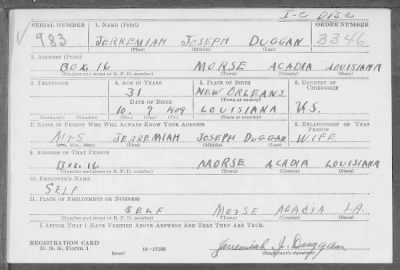 I-C Disc
SERIAL NUMBER 1. NAME (Print) ORDER NUMBER
983 JERREMIAH JOSEPH DUGGAN 3346
(First) (Middle) (Last)
2. ADDRESS (Print)
BOX 16 MORSE ACADIA LOUISIANA
(Number and street or R. F. D. number) (Town) (County) (State)
3. TELEPHONE 4. AGE IN YEARS 5. PLACE OF BIRTH 6. COUNTRY OF CITIZENSHIP
31 NEW ORLEANS
DATE OF BIRTH (Town or county)
10 9 1909 LOUISIANA U.S.
(Mo.) (Day) (Yr.) (State or country)
7. NAME OF PERSON WHO WILL ALWAYS KNOW YOUR ADDRESS 8. RELATIONSHIP OF THAT PERSON
MRS JERREMIAH JOSEPH DUGGAN WIFE
(Mr., Mrs., Miss) (First) (Middle) (Last)
9. ADDRESS OF THAT PERSON
BOX 16 MORSE ACADIA LOUISIANA
(Number and street or R. F. D. number) (Town) (County) (State)
10. EMPLOYER'S NAME
SELF
11. PLACE OF EMPLOYMENT OR BUSINESS
SELF MORSE ACADIA LA.
(Number and street or R. F. D. number) (Town) (County) (State)
I AFFIRM THAT I HAVE VERIFIED ABOVE ANSWERS AND THAT THEY ARE TRUE.
REGISTRATION CARD
D. S. S. Form 1 (over) 16-17105 Jeremiah J. Duggan
(Registrant's signature)